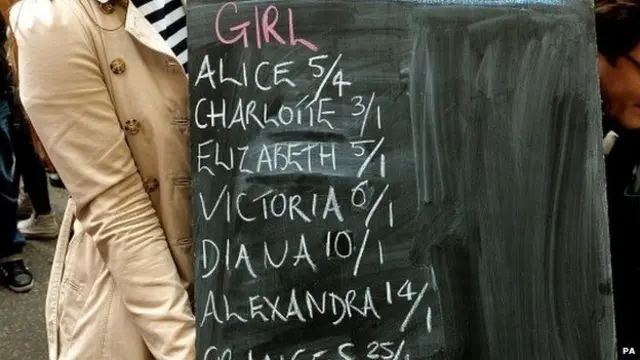 GIRL
ALICE 5/4
CHARLOTTE 3/1
ELIZABETH 5/1
VICTORIA 6/1
DIANA 10/1
ALEXANDRA 14/1
25/1
PA